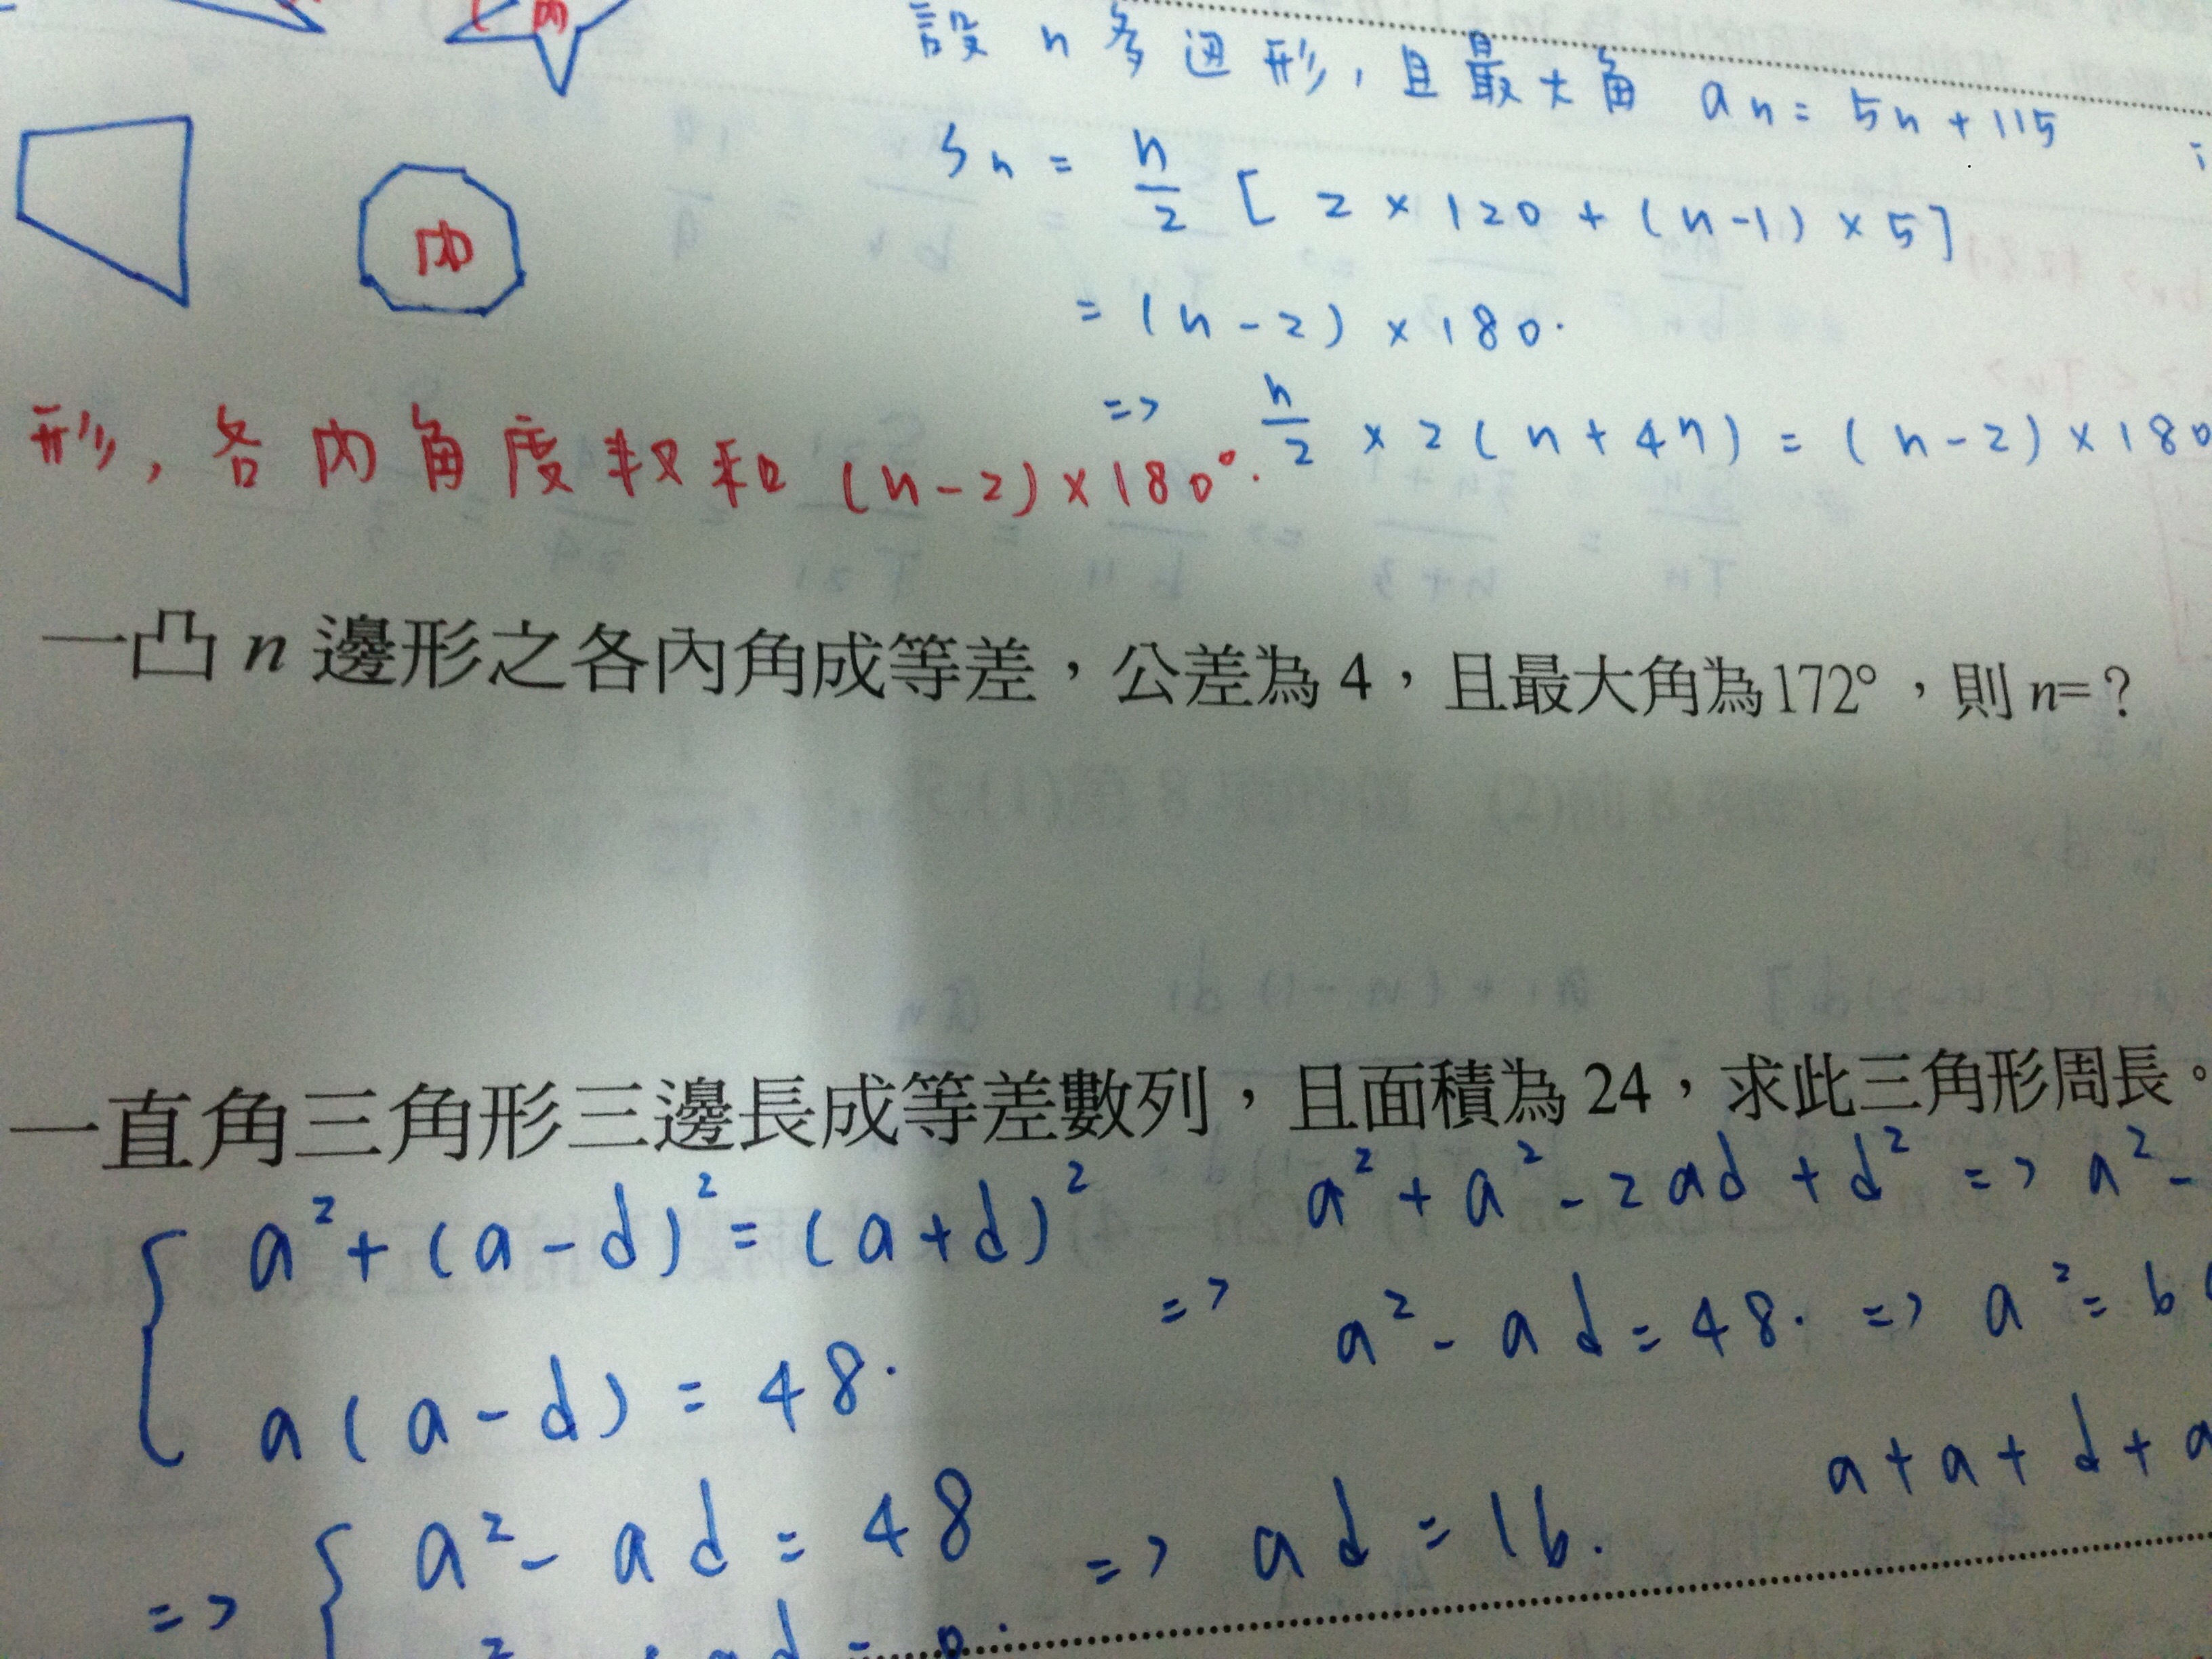 內
設 n 多边形，且最大角 an = 5n + 115
Sn = n/2 [ 2 × 120 + (n-1) × 5 ]
內
= (n-2) × 180.
=> n/2 × 2 ( n + 4n ) = (n-2) × 180
形，各內角度數和 (n-2)×180°.
一凸 n 邊形之各內角成等差，公差為 4，且最大角為172°，則 n=？
一直角三角形三邊長成等差數列，且面積為 24，求此三角形周長。
a² + (a-d)² = (a+d)²
a² + a² - 2ad + d² => a² -
=> a² - ad = 48. => a² = 6
a(a-d) = 48.
a + a + d + a
=> { a² - ad = 48 => ad = 16.